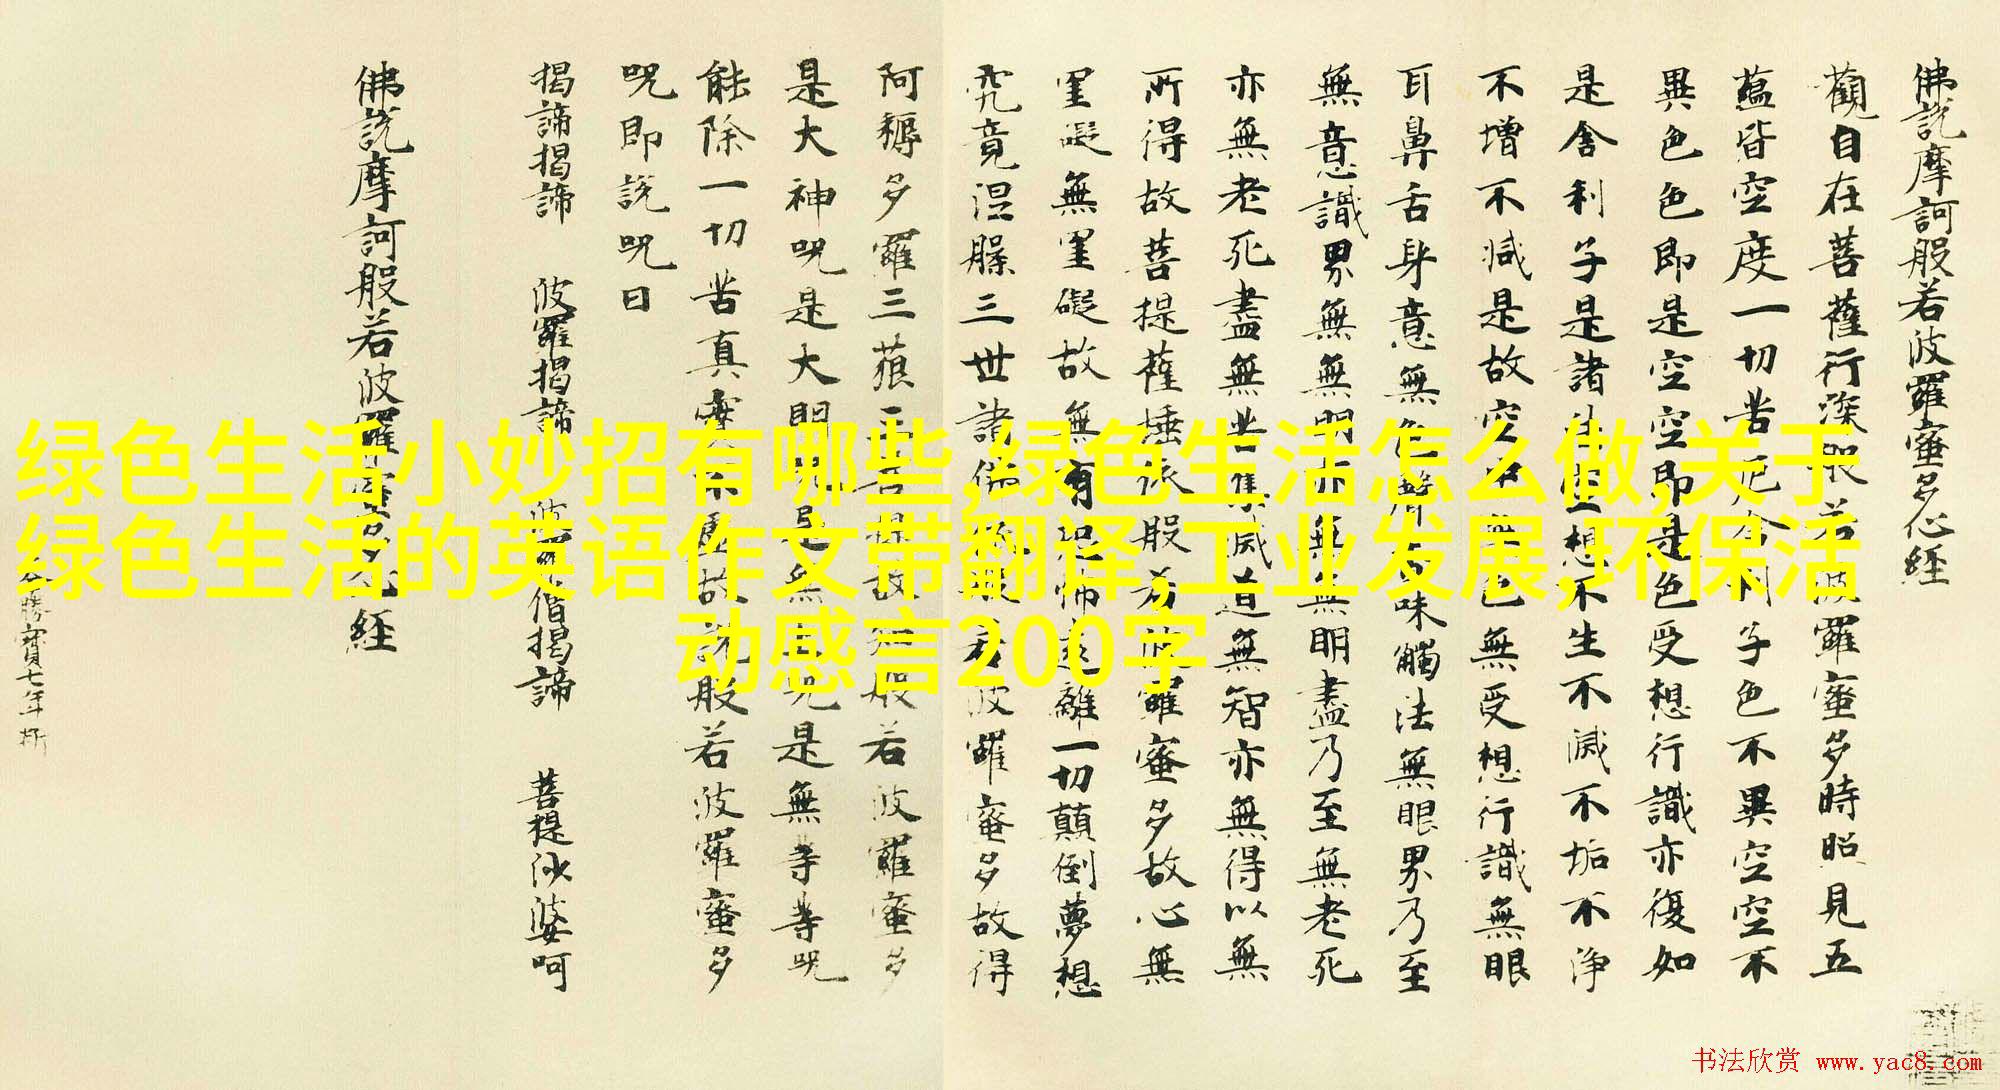 佛說摩訶般若波羅蜜多心經
觀自在菩薩行深般若波羅蜜多時照見五
蘊皆空度一切苦厄舍利子色不異空空不
異色色即是空空即是色受想行識亦復如
是舍利子是諸法空想不生不滅不垢不淨
不增不減是故空中無色無受想行識無眼
耳鼻舌身意無色聲香味觸法無眼界乃至
無意識界無無明亦無無明盡乃至無老死
亦無老死盡無苦集滅道無智亦無得以無
所得故菩提薩埵依般若波羅蜜多故心無
罣礙無罣礙故無有恐怖遠離一切顛倒夢想
究竟涅槃三世諸佛依般若波羅蜜多故得
阿耨多羅三藐三菩提故知般若波羅蜜多
是大神咒是大明咒是無上咒是無等等咒
能除一切苦真實不虛故說般若波羅蜜多
咒即說咒曰
揭諦揭諦 波羅揭諦 波羅僧揭諦 菩提沙婆呵
佛說摩訶般若波羅蜜多心經
勝寶七年
绿色生活小妙招有哪些,绿色生活怎么做,关于
绿色生活的英语作文带翻译,工业发展,环保活
动感言200字
书法欣赏 www.yac8.com